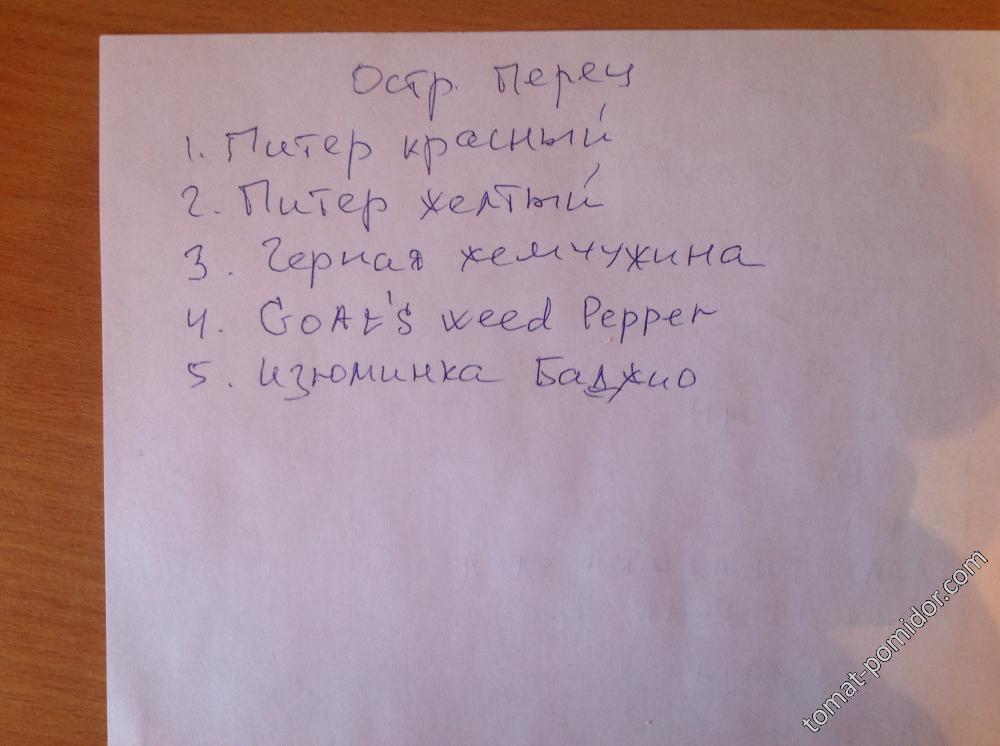 Остр. Перец
1. Питер красный
2. Питер желтый
3. Черная жемчужина
4. GOAt'S weed Pepper
5. Изюминка Баджио
tomat-pomidor.com